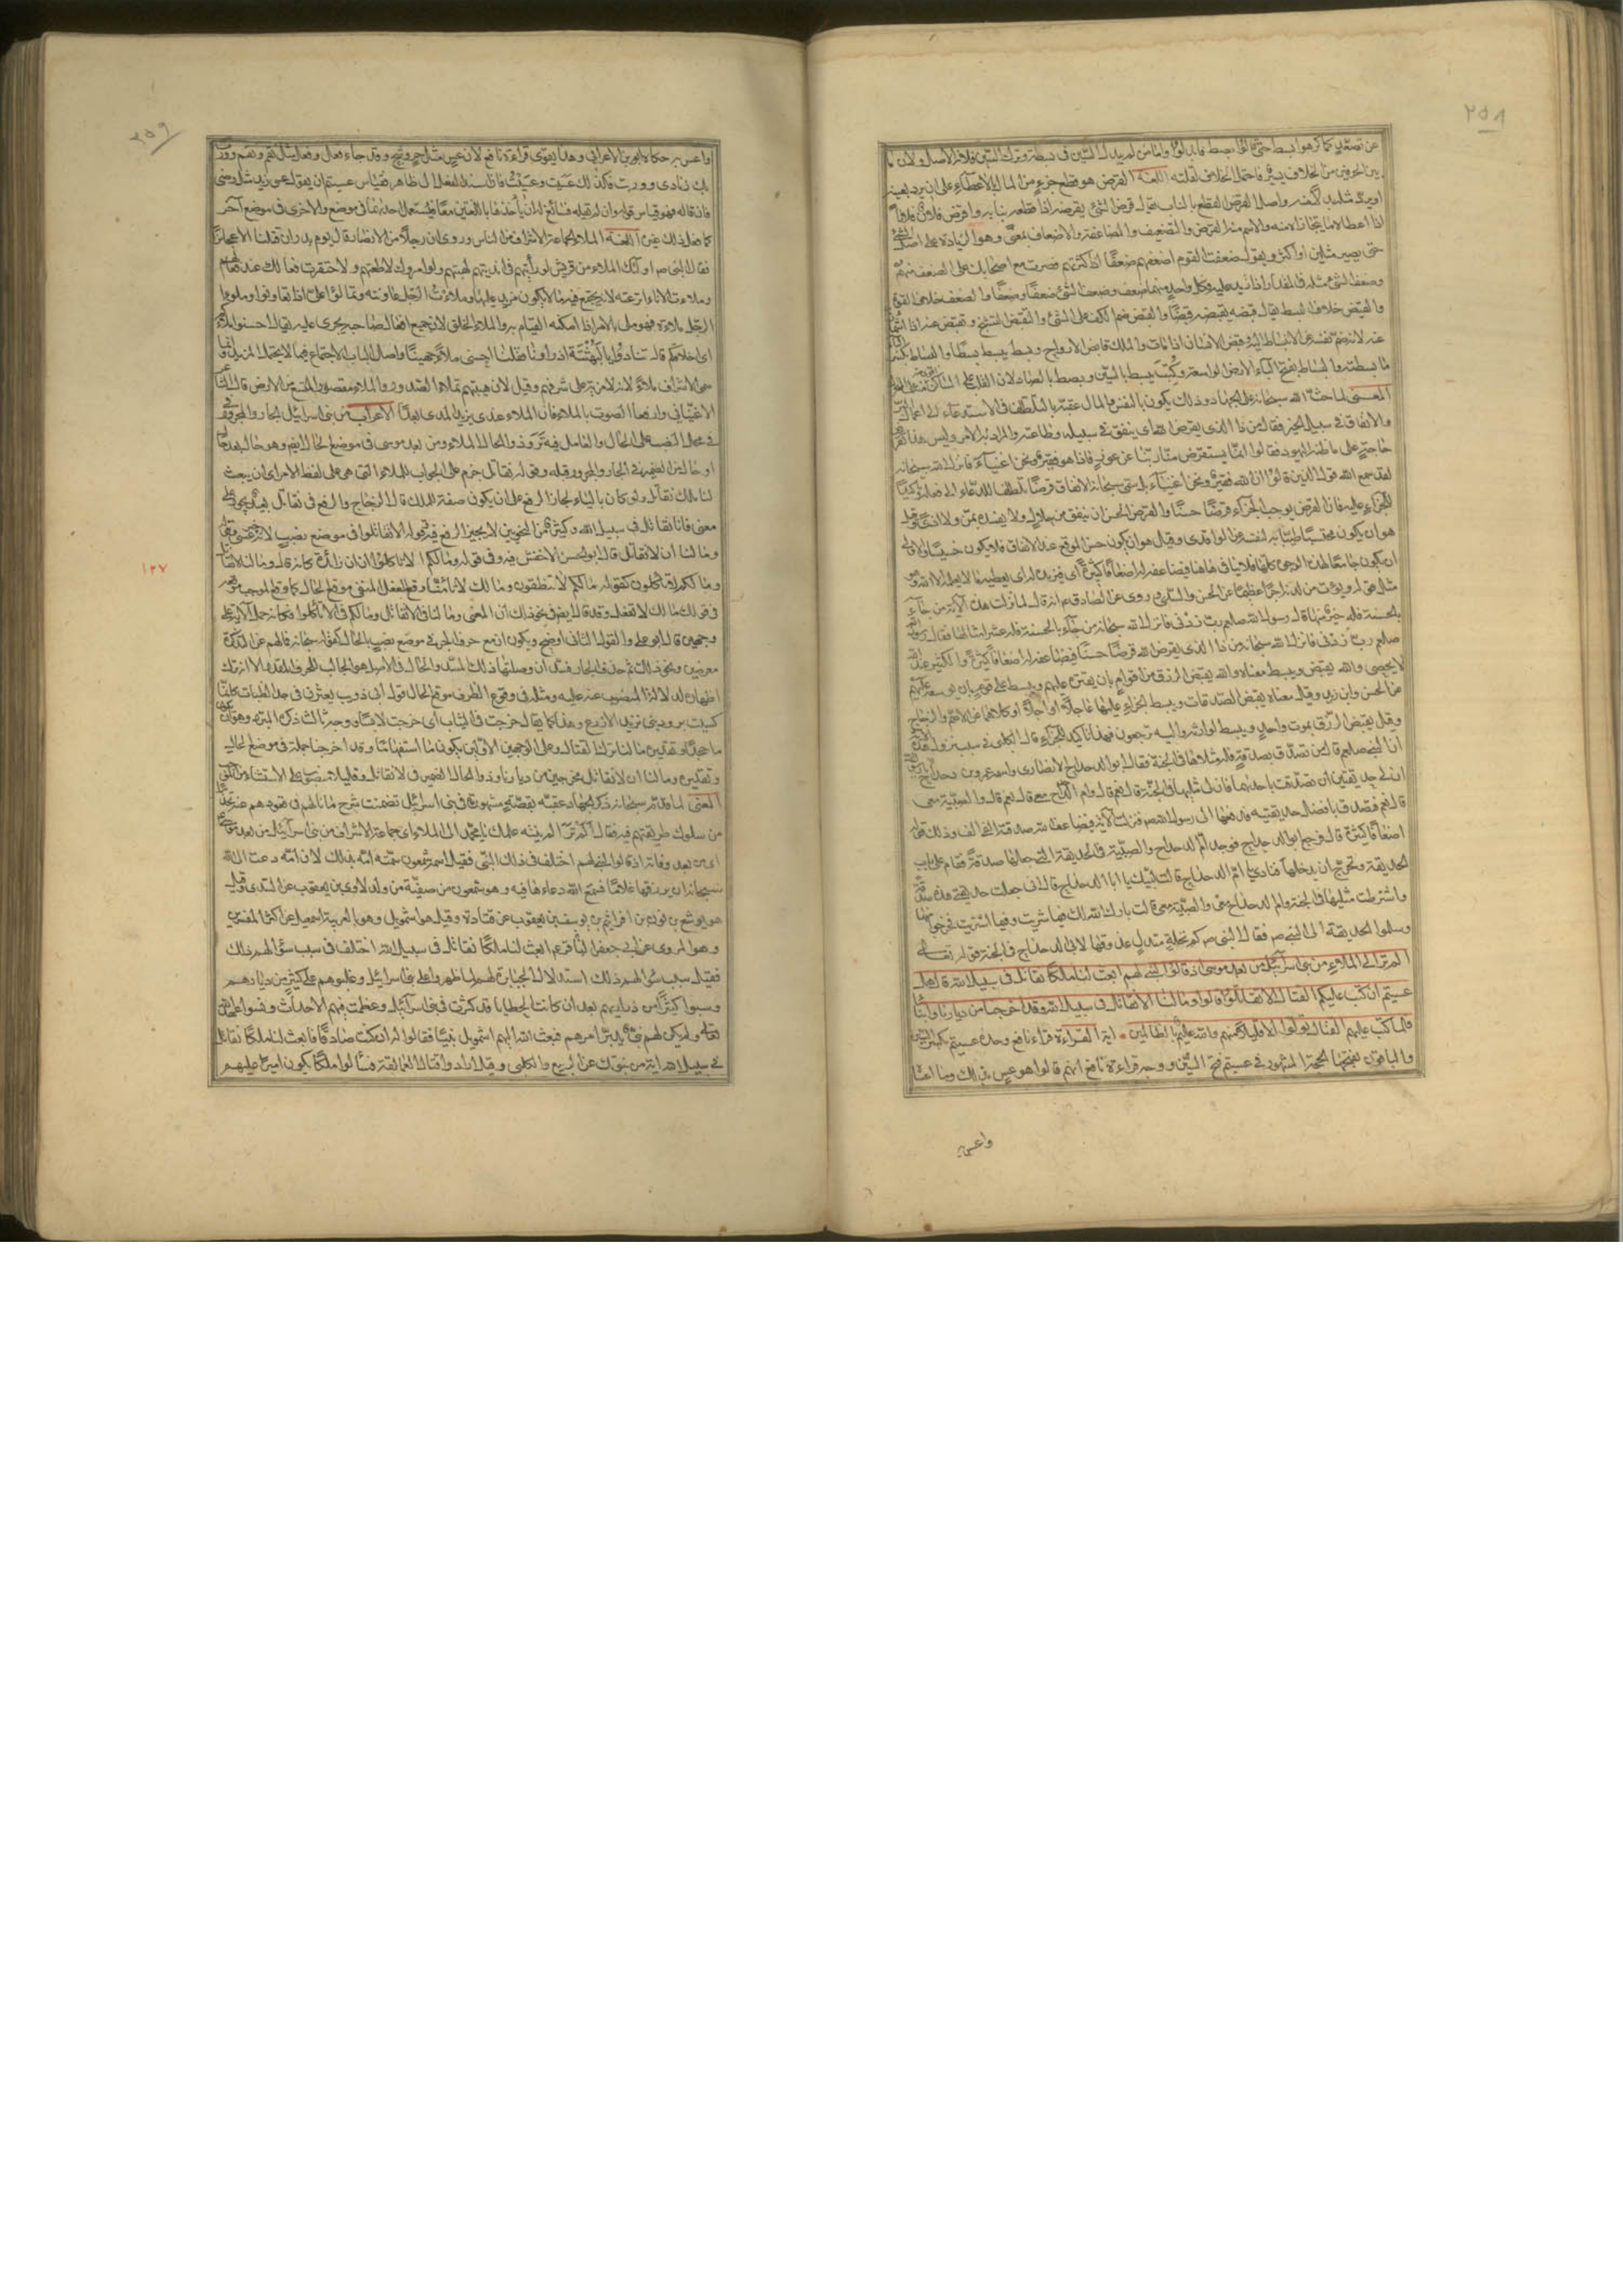 ٢٥٨
عن تصعد كما كرهوا بسط حتى قالوا بصط فابدلوا واما من لم يبدل السين في بسطة وترك السين فلانه الاصل ولان ما
بين الحرفين من الخلاف يسير فاحتمل الخلاف لقلته اللغة القرض هو قطع جزء من المال بالاعطاء على ان يرد بعينه
او يرد مثله بدلا منه واصل القرض القطع بالناب يقال قرض الشئ يقرضه اذا قطعه بنابه واقرض فلان فلانا
اذا اعطاه ما يتجازاه منه والاسم منه القرض والتضعيف والمضاعفة والاضعاف بمعنى وهو الزيادة على اصل الشئ
حتى يصير مثلين او اكثر ويقول ضعفت القوم اضعفهم ضعفا اذا كثرتهم فصرت مع اصحابك على الضعف منهم
وضعف الشئ مثله في المقدار اذا زيد عليه فكل واحد منهما ضعف وضعف الشئ ضعفا وضعفا والضعف خلاف القوة
والقبض خلاف البسط يقال قبضه يقبضه قبضا والقبض ضم الكف على الشئ والتقبض التشنج وتقبض عنه اذا اشماز
عنه لانه ضم نفسه عن الانبساط اليه وقبض الانسان اذا مات والملك قابض الارواح وبسط يبسط بسطا والبساط بكسر الباء
ما بسطته والبساط بفتح الباء الارض الواسعة وكتب يبسط بالسين وبصط بالصاد لان القلب على الساكن
المعنى لما حث الله سبحانه على الجهاد وذلك يكون بالنفس والمال عقبه بالتلطف في الاستدعاء الى اعمال البر
والانفاق في سبيل الخير فقال من ذا الذي يقرض الله اي ينفق في سبيله وطاعته والمراد به الامر وليس هذا بقرض
حاجة على ما ظنه اليهود فقالوا انما يستقرض منا ربنا عن عوز فاذا هو فقير ونحن اغنياء فانزل الله سبحانه
لقد سمع الله قول الذين قالوا ان الله فقير ونحن اغنياء بل سمى سبحانه الانفاق قرضا تلطفا للدعاء الى فعله وتاكيدا
للجزاء عليه فان القرض يوجب الجزاء قرضا حسنا والقرض الحسن ان ينفق من حلال ولا يفسده بمن ولا اذى وقيل
هو ان يكون محتسبا طيبا به نفسه عن الواقدي وقيل هو ان يكون حسن الموقع عند الانفاق فلا يكون خسيسا والاولى
ان يكون جامعا لهذه الوجوه كلها فلا تنافي فيها فيضاعفه له اضعافا كثيرة اي فيزيده له اي يعطيه ما لا يعلمه الا الله وهو
مثل قوله ويؤت من لدنه اجرا عظيما عن الحسن والسدي وروي عن الصادق ع انه قال لما نزلت هذه الآية من جاء
بالحسنة فله خير منها قال رسول الله صلعم رب زدني فانزل الله سبحانه من جاء بالحسنة فله عشر امثالها فقال رسول الله
صلعم رب زدني فانزل الله سبحانه من ذا الذي يقرض الله قرضا حسنا فيضاعفه له اضعافا كثيرة والكثير عند الله
لا يحصى والله يقبض ويبسط معناه والله يقبض الرزق من اقوام بان يقتر عليهم ويبسط على قوم بان يوسعه عليهم
عن الحسن وابن زيد وقيل معناه يقبض الصدقات ويبسط الجزاء عليها عاجلا او آجلا او كلاهما عن الاصم والزجاج
وقيل يقبض الرزق بموت واحد ويبسط لوارثه واليه ترجعون فهذا تاكيد للجزاء قال الكلبي في سبب نزول هذه الآية
ان النبي صلعم قال من تصدق بصدقة فله مثلاها في الجنة فقال ابو الدحداح الانصاري واسمه عمرو بن دحداح يا رسول الله
ان لي حديقتين ان تصدقت باحدهما فان لي مثليها في الجنة قال نعم قال وام الدحداح معي قال نعم قال والصبية معي
قال نعم فتصدق بافضل حديقتيه فدفعها الى رسول الله صم فنزلت الآية فيضاعف الله صدقته الفي الف وذلك قوله
اضعافا كثيرة قال فرجع ابو الدحداح فوجد ام الدحداح والصبية في الحديقة التي جعلها صدقة فقام على باب
الحديقة وتحرج ان يدخلها فنادى يا ام الدحداح قالت لبيك يا ابا الدحداح قال اني جعلت حديقتي هذه صدقة
واشترطت مثليها في الجنة وام الدحداح معي والصبية معي قالت بارك الله لك فيما شريت وفيما اشتريت فخرجوا منها
وسلموا الحديقة الى النبي صم فقال النبي صم كم نخلة متدل عذوقها لابي الدحداح في الجنة قوله تعالى
الم تر الى الملاء من بني اسرآئيل من بعد موسى اذ قالوا لنبي لهم ابعث لنا ملكا نقاتل في سبيل الله قال هل
عسيتم ان كتب عليكم القتال الا تقاتلوا قالوا وما لنا الا نقاتل في سبيل الله وقد اخرجنا من ديارنا وابنائنا
فلما كتب عليهم القتال تولوا الا قليلا منهم والله عليم بالظالمين اية القراءة قراء نافع وحده عسيتم بكسر السين
والباقون بفتحها الحجة المشهور في عسيتم فتح السين ووجه قراءة نافع انهم قالوا هو عس بذلك وما اعساه
واعس به
٢٥٩
واعس به حكاه ابن الاعرابي وهذا يقوي قراءة نافع لان عس مثل حر وشج وقد جاء فعل وفعل مثل نقم ونقم وورت
بك زنادي ووريت فكذلك عسيت وعسيت فان اسند الفعل الى ظاهر فقياس عسيتم ان يقول عسي زيد مثل رضي
فان قاله فهو قياس قوله وان لم يقله فسائغ له ان يأخذ باللغتين معا فيستعمل احدهما في موضع والاخرى في موضع آخر
كما فعل ذلك غيره اللغة الملاء الجماعة الاشراف من الناس وروي ان رجلا من الانصار قال يوم بدر ان قتلنا الا عجائز
فقال النبي ص اولئك الملاء من قريش لو رأيتهم في انديتهم لهبتهم ولو امروك لاطعتهم ولاحتقرت فعالك عند فعالهم
وملات الاناء اترعته لانه يجتمع فيه ما لا يكون مزيد عليه ومالات الرجل عاونته وتمالؤا على اذا تعاونوا وملؤ
الرجل ملاءة فهو ملي بالامر اذا امكنه القيام به والملاء الخلق لان جميع افعال صاحبه يجري عليه يقال احسنوا املاءكم
اي اخلاقكم قال تنادوا يا لبهثة اذ راونا فقلنا احسني ملاء جهينا واصل الباب الاجتماع فيما لا يحتمل المزيد وانما
سمي الاشراف ملاء لانه لا مزيد على شرفهم وقيل لان هيبتهم تملاء الصدور والملا مقصورا المتسع من الارض قال الشاعر
الا غنياني وارفعا الصوت بالملا فان الملا عندي يزيد المدى بعدا الاعراب من بني اسرائيل الجار والمجرور
في محل النصب على الحال والعامل فيه تر وذو الحال الملاء ومن بعد موسى في موضع الحال ايضا وهو حال بعد حال
او حال من الضمير في الجار والمجرور قبله وقوله نقاتل جزم على الجواب للمسألة التي هي على لفظ الامر اي ان يبعث
لنا ملك نقاتل ولو كان بالياء لجاز الرفع على ان يكون صفة للملك قال الزجاج والرفع في نقاتل بعيد يجوز على
معنى فانا نقاتل في سبيل الله وكثير من النحويين لا يجيز الرفع فيه وقوله الا تقاتلوا في موضع نصب لانه خبر عسى
وما لنا ان لا نقاتل قال ابو الحسن الاخفش فيه وفي قوله وما لكم الا تاكلوا ان ان زائدة كانه قال وما لنا لا نقاتل
وما لكم لا تاكلون كقوله ما لكم لا تنطقون وما لك لا تامنا وقع الفعل المنفي موقع الحال كما وقع الموجب موقعه
في قولك مالك لا تفعل وقد قال ايضا في نحو ذلك ان المعنى وما لنا في الا نقاتل وما لكم في الا تاكلوا فكانه حمل الآية على
وجهين قال ابو علي والقول الثاني اوضح ويكون ان مع حرف الجر في موضع نصب بالحال كقوله سبحانه فما لهم عن التذكرة
معرضين ونحو ذلك ثم حذف الجار فسد ان وصلتها ذلك المسد والحال في الاصل هو الجالب للحرف المقدر الا انه ترك
اظهاره لدلالة المنصوب عنه عليه ومثله في وقوع الظرف موقع الحال قول ابي ذؤيب يعثرن في حد الظبات كانما
كسيت برود بني تزيد الاذرع وهذا كما يقال خرجت في الثياب اي خرجت لابسا
ما جحدا وتقديره ما لنا ترك القتال وعلى الوجهين الاولين يكون ما استفهاما وقد اخرجنا جملة في موضع الحال
وتقديره وما لنا ان لا نقاتل مخرجين من ديارنا وذو الحال الضمير في لا نقاتل وقليلا منصوب على الاستثناء من الموجب
المعنى لما قدم سبحانه ذكر الجهاد عقبه بقصة مشهورة في بني اسرائيل تضمنت شرح ما نالهم في قعودهم عنه تحذيرا
من سلوك طريقتهم فيه فقال الم تر اي الم ينته علمك يا محمد الى الملاء اي جماعة الاشراف من بني اسرآئيل من بعد موسى
اي من بعد وفاته اذ قالوا لنبي لهم اختلف في ذلك النبي فقيل اسمه شمعون سمته امه بذلك لان امه دعت الى الله
سبحانه ان يرزقها غلاما فسمع الله دعاءها فيه وهو شمعون بن صفية من ولد لاوي بن يعقوب عن السدي وقيل
هو يوشع بن نون بن افرائيم بن يوسف بن يعقوب عن قتادة وقيل هو اشمويل وهو بالعربية اسمعيل عن اكثر المفسرين
وهو المروي عن ابي جعفر ابعث لنا ملكا نقاتل في سبيل الله اختلف في سبب سؤالهم ذلك
فقيل سبب سؤالهم ذلك استذلال الجبابرة لهم لما ظهروا على بني اسرائيل وغلبوهم على كثير من ديارهم
وسبوا كثيرا من ذراريهم بعد ان كانت الخطايا قد كثرت في بني اسرآئيل وعظمت فيهم الاحداث ونسوا عهد الله
تعالى ولم يكن لهم نبي يدبر امرهم فبعث الله اليهم اشمويل نبيا فقالوا له ان كنت صادقا فابعث لنا ملكا نقاتل
في سبيل الله اية من نبوتك عن الربيع والكلبي وقيل ارادوا قتال العمالقة فسألوا ملكا يكون اميرا عليهم
١٢٧